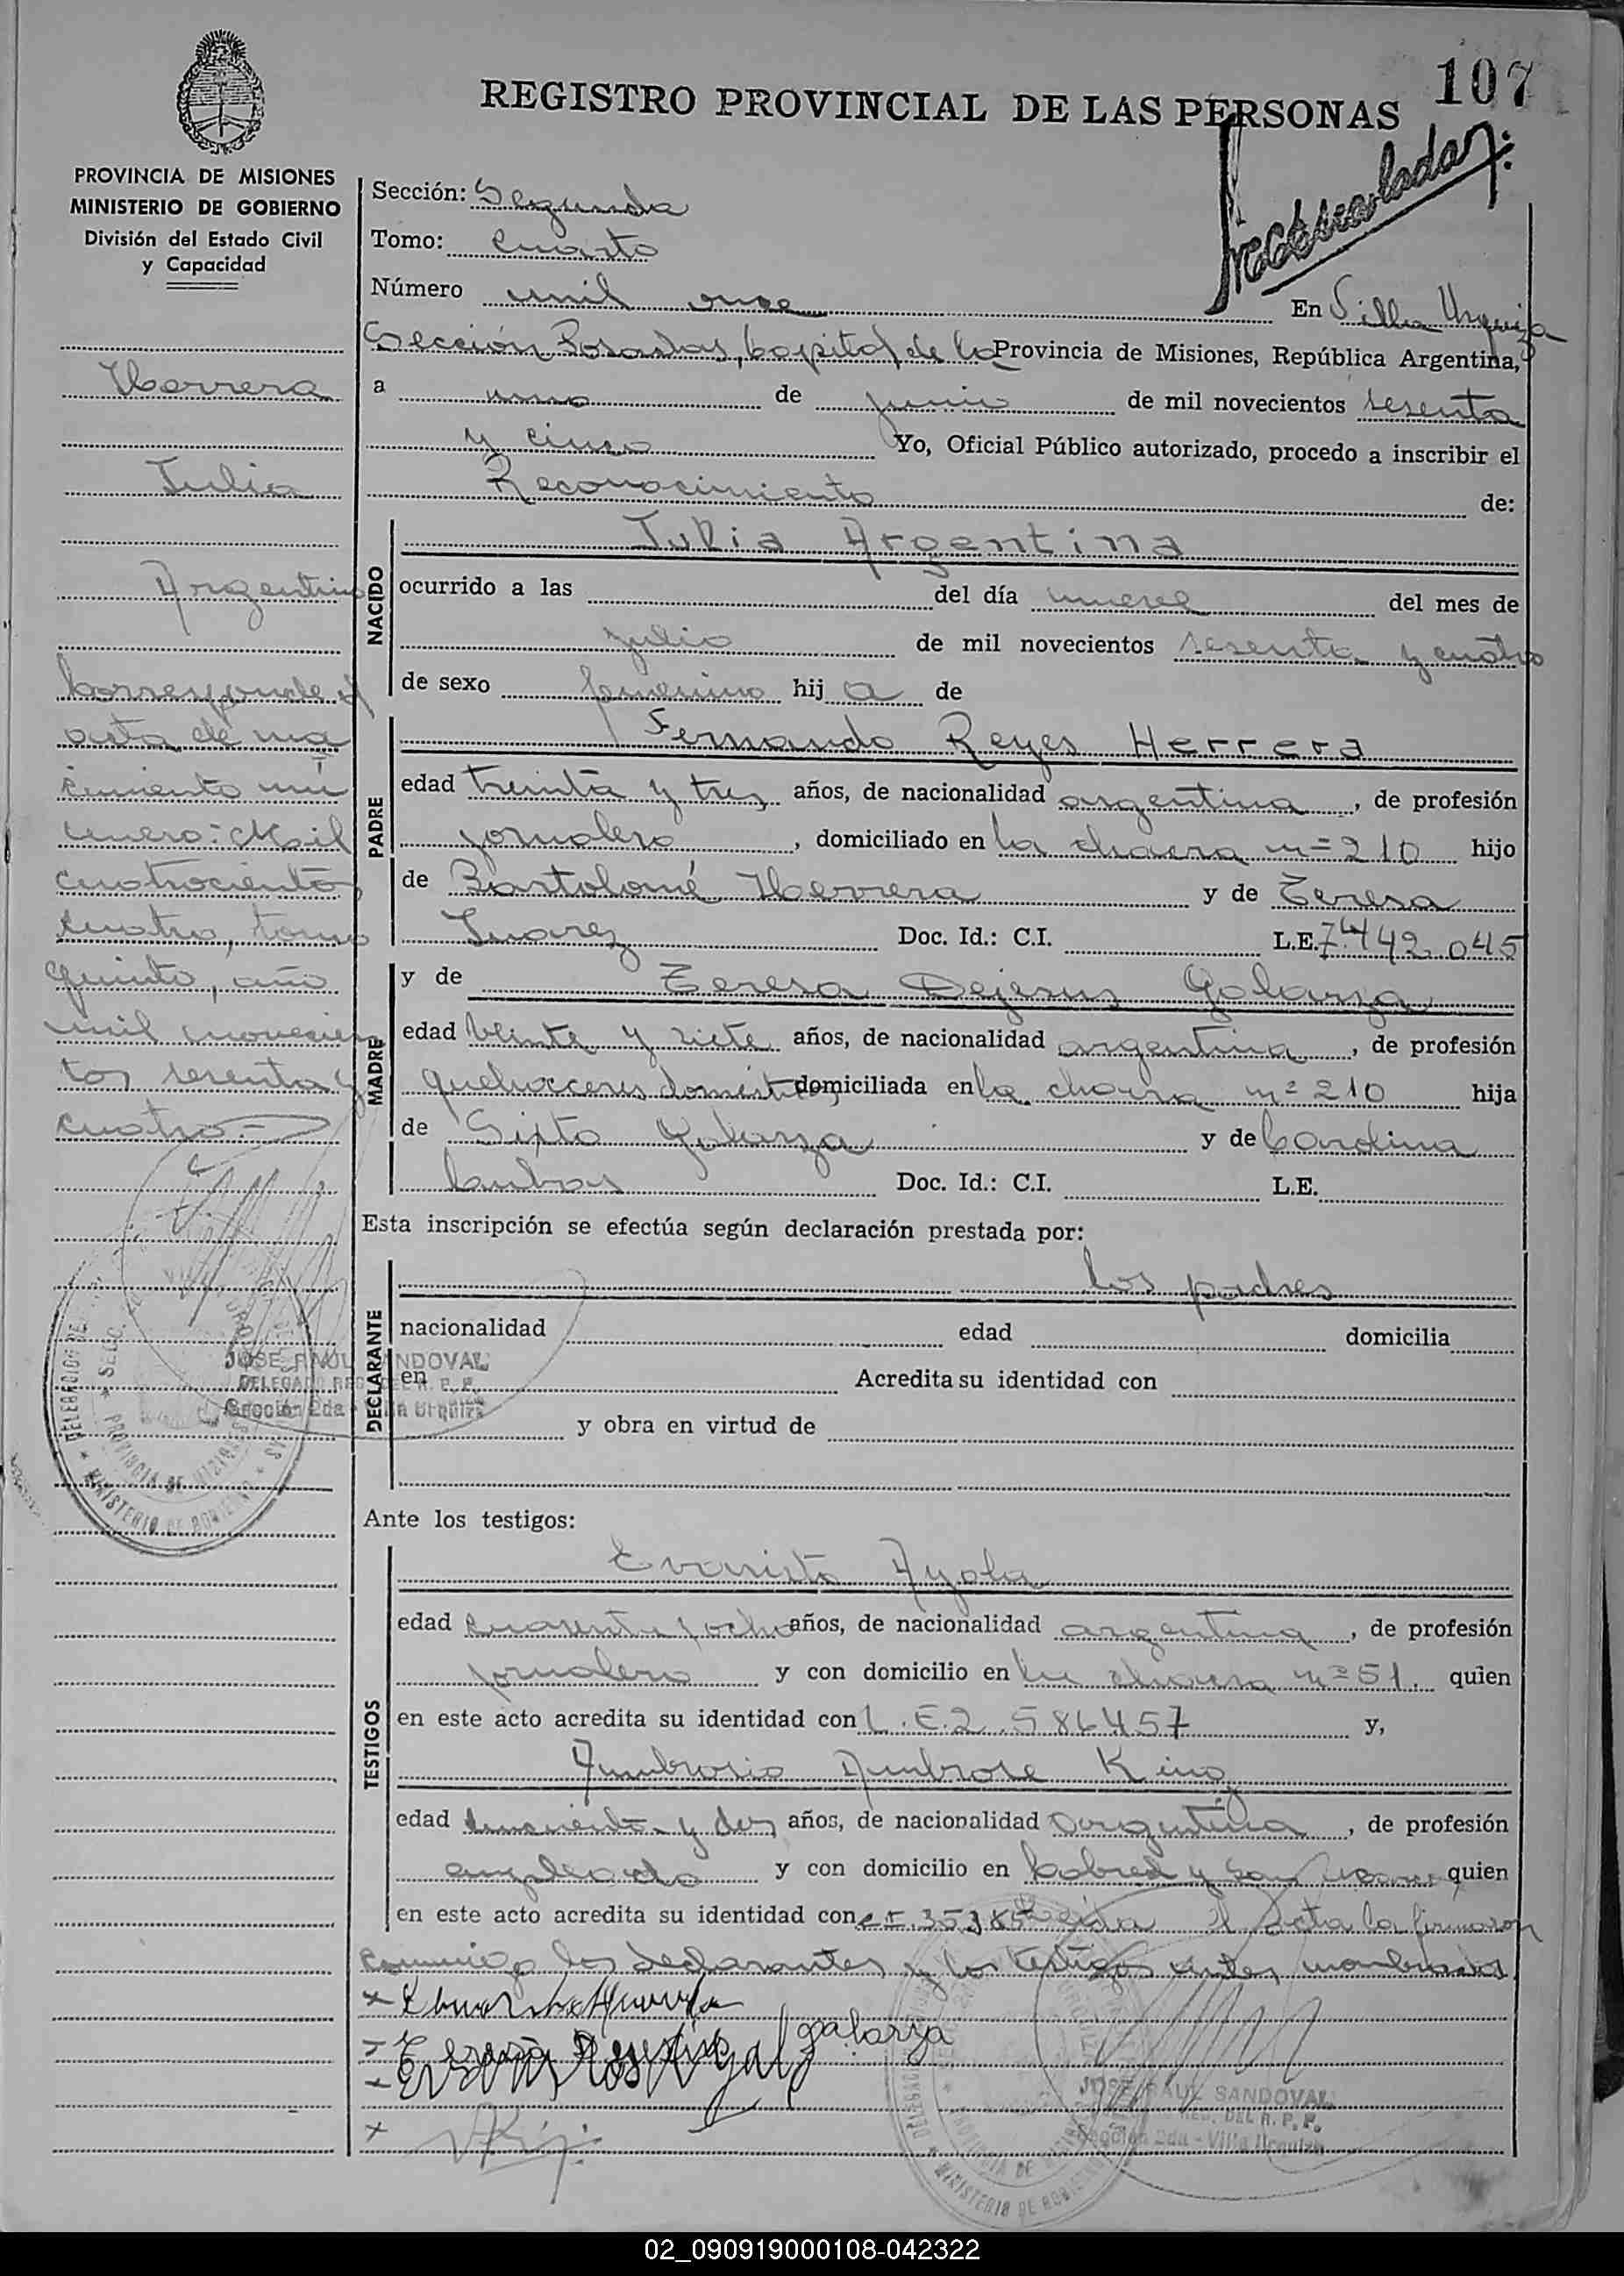 107
REGISTRO PROVINCIAL DE LAS PERSONAS
PROVINCIA DE MISIONES
MINISTERIO DE GOBIERNO
División del Estado Civil
y Capacidad
Herrera
Julia
Argentina
Corresponde el
acta de na
cimiento nú
mero: Mil
cuatrocientos
cuatro, tomo
quinto, año
mil novecien
tos sesenta y
cuatro.-
Sección: Segunda
Tomo: Cuarto
Número mil once
En Villa Urquiza
Sección Posadas, Capital de la Provincia de Misiones, República Argentina,
a uno de junio de mil novecientos sesenta
y cinco Yo, Oficial Público autorizado, procedo a inscribir el
Reconocimiento de:
NACIDO
Julia Argentina
ocurrido a las del día nueve del mes de
julio de mil novecientos sesenta y cuatro
de sexo femenino hij a de
PADRE
Fernando Reyes Herrera
edad treinta y tres años, de nacionalidad argentina, de profesión
jornalero, domiciliado en la chacra nº 210 hijo
de Bartolomé Herrera y de Teresa
Juarez Doc. Id.: C.I. L.E. 7.442.045
MADRE
y de Teresa Dejesus Galarza
edad veinte y siete años, de nacionalidad argentina, de profesión
quehaceres domést domiciliada en la chacra nº 210 hija
de Sixto Galarza y de Carolina
Doc. Id.: C.I. L.E.
Esta inscripción se efectúa según declaración prestada por:
DECLARANTE
los padres
nacionalidad edad domicilia
en Acredita su identidad con
y obra en virtud de
JOSE RAUL SANDOVAL
DELEGADO REG. DEL R. P. P.
Sección 2da - Villa Urquiza
MINISTERIO DE GOBIERNO
PROVINCIA DE MISIONES
Ante los testigos:
TESTIGOS
Evaristo Ayala
edad cuarenta y ocho años, de nacionalidad argentina, de profesión
jornalero y con domicilio en la chacra nº 51. quien
en este acto acredita su identidad con L.E. 2.586457 y,
Ambrosio Ambrose King
edad cincuenta y dos años, de nacionalidad argentina, de profesión
empleado y con domicilio en y quien
en este acto acredita su identidad con acta la firmaron
conmigo los declarantes y los testigos antes nombrados
galarza
JOSE RAUL SANDOVAL
REG. DEL R. P. P.
Sección 2da - Villa Urquiza
MINISTERIO DE GOBIERNO
02_090919000108-042322